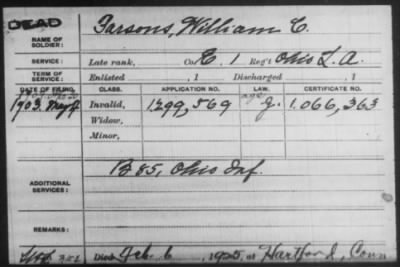 DEAD
NAME OF SOLDIER: Parsons, William C.
SERVICE: Late rank, Co. E. 1 Reg't Ohio L. A.
TERM OF SERVICE: Enlisted , 1 Discharged , 1
DATE OF FILING. CLASS. APPLICATION NO. LAW. CERTIFICATE NO.
1903. May Invalid, 1299,569 age g. 1.066,363
Widow,
Minor,
ADDITIONAL SERVICES: B 85, Ohio Inf.
REMARKS:
Died Feb. 6, 1925, at Hartford, Conn